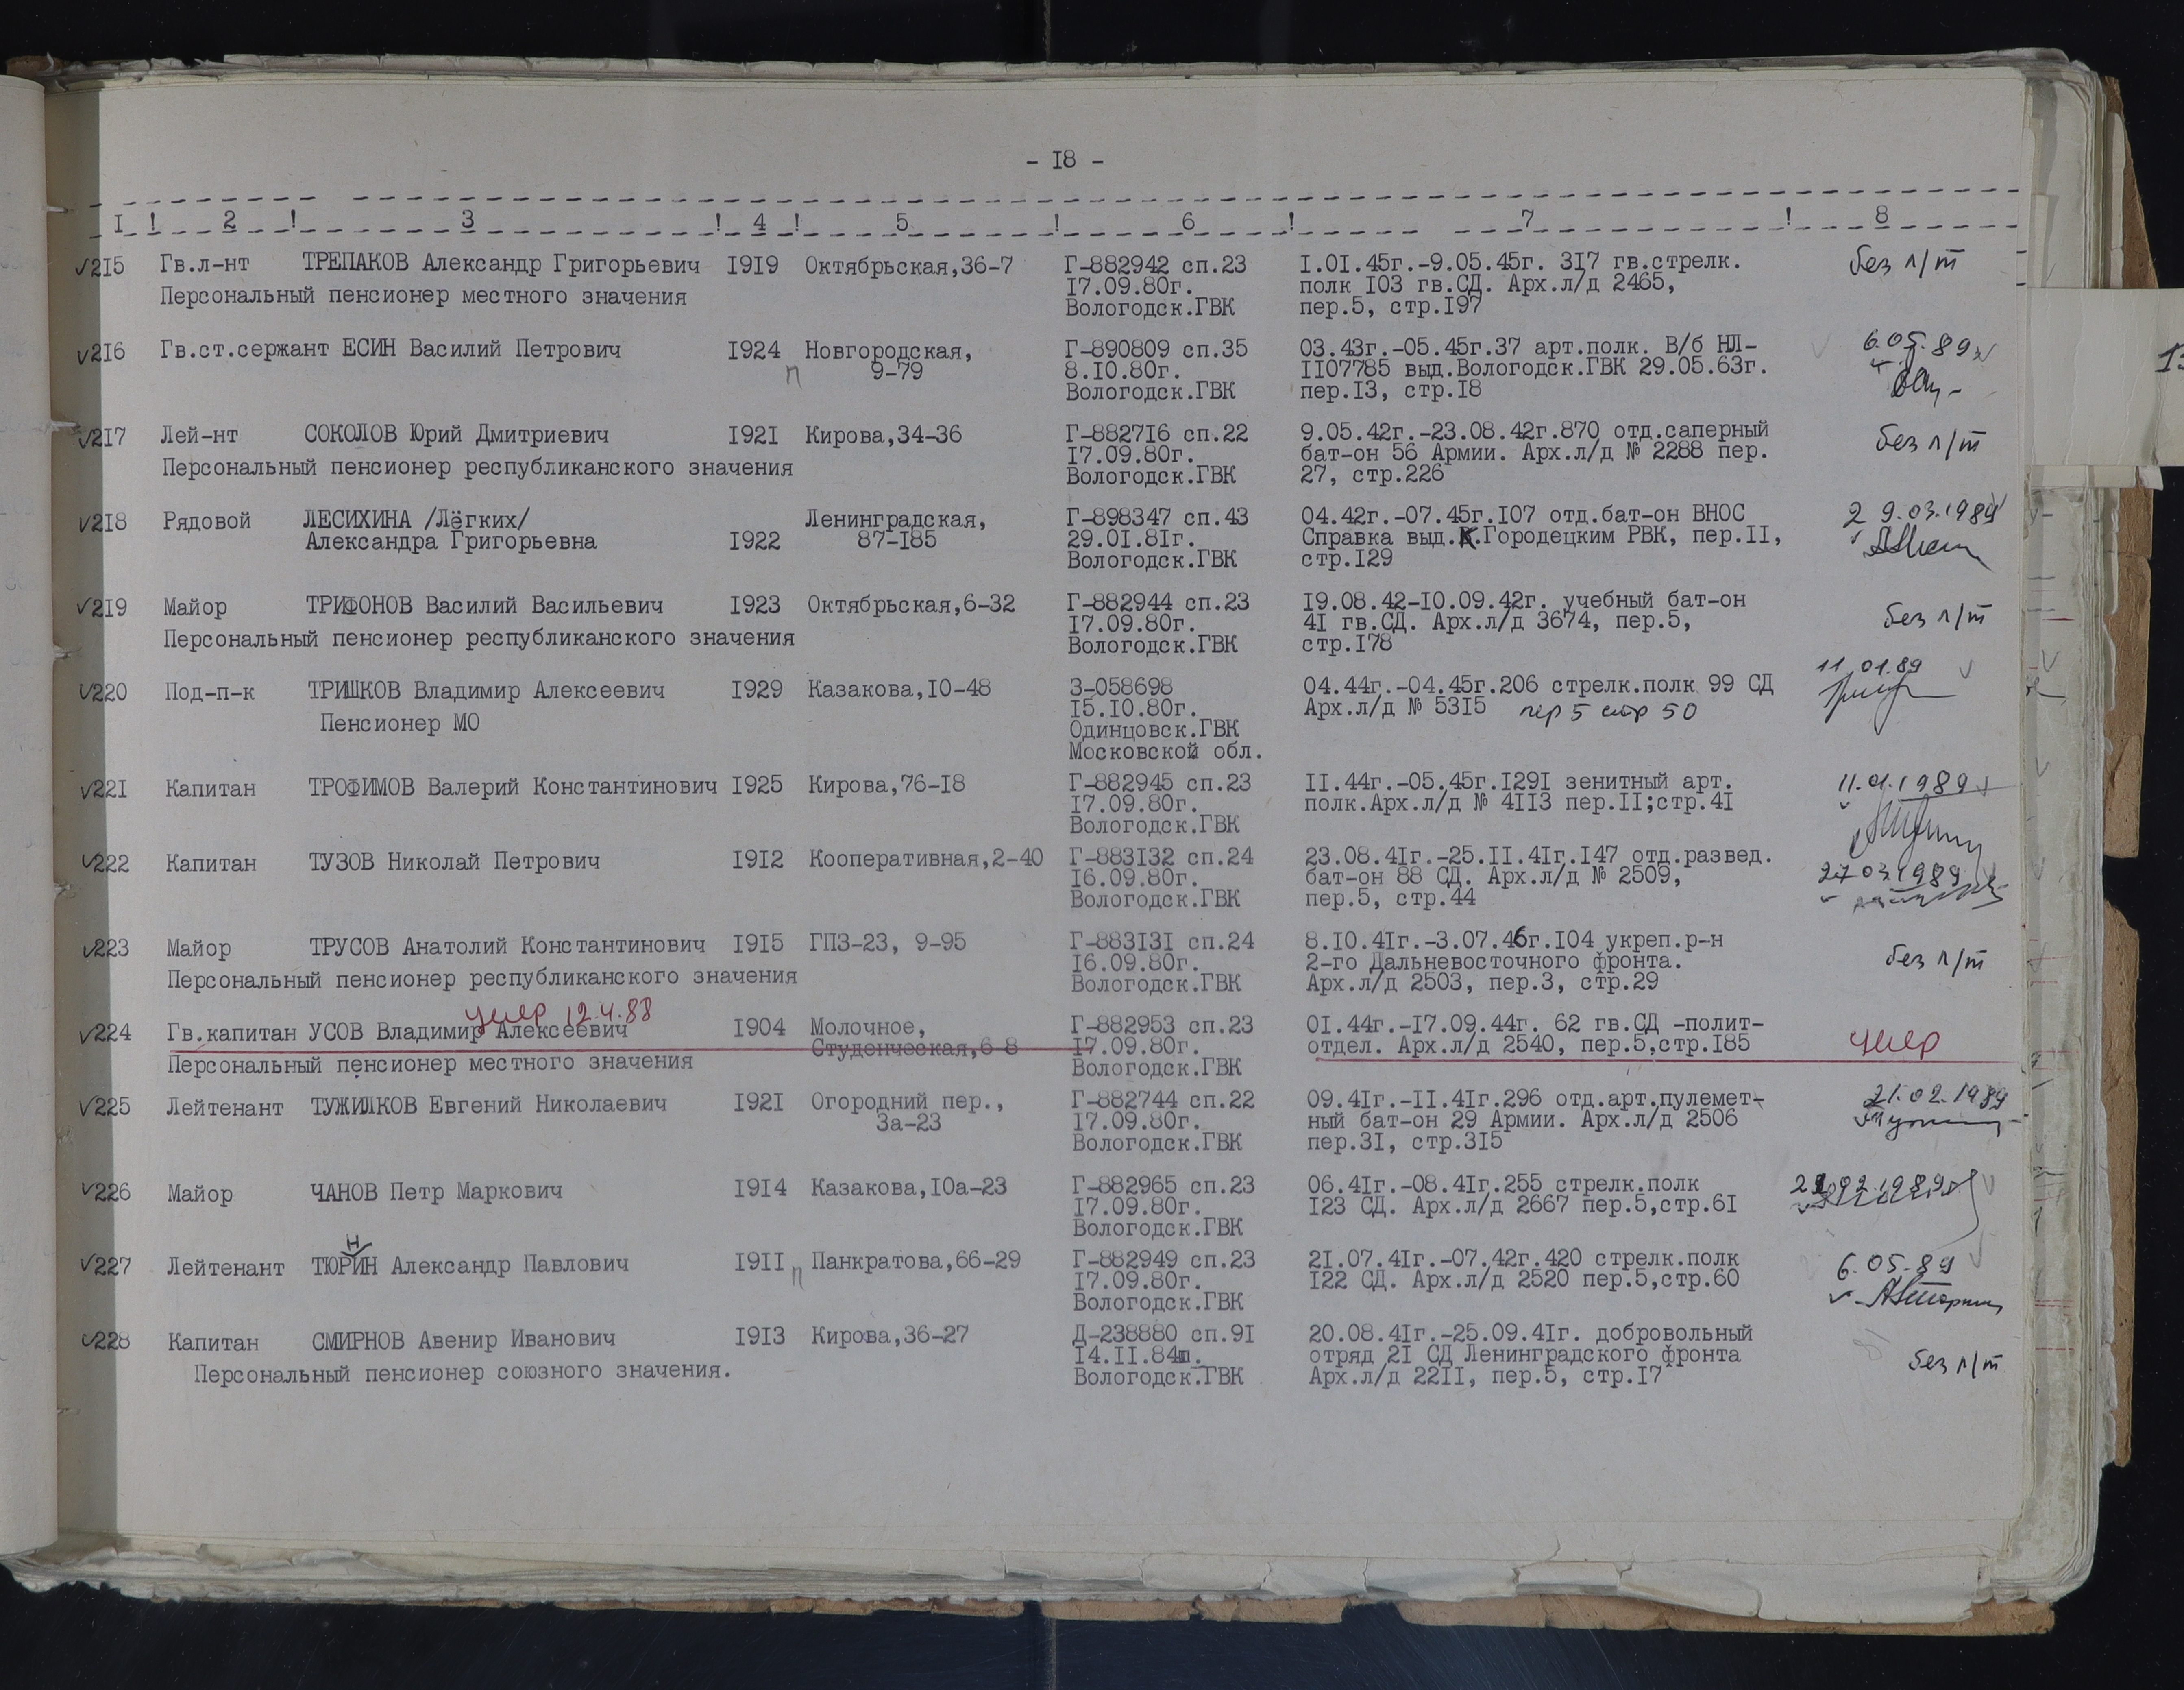 - I8 -
I ! 2 ! 3 ! 4 ! 5 ! 6 ! 7 ! 8
√2I5 Гв.л-нт ТРЕПАКОВ Александр Григорьевич I9I9 Октябрьская,36-7 Г-882942 сп.23 I.0I.45г.-9.05.45г. 3I7 гв.стрелк. без л/т
Персональный пенсионер местного значения I7.09.80г. полк I03 гв.СД. Арх.л/д 2465,
Вологодск.ГВК пер.5, стр.I97
√2I6 Гв.ст.сержант ЕСИН Василий Петрович I924 Новгородская, Г-890809 сп.35 03.43г.-05.45г.37 арт.полк. В/б НЛ- 6.05.89
п 9-79 8.I0.80г. II07785 выд.Вологодск.ГВК 29.05.63г.
Вологодск.ГВК пер.I3, стр.I8
√2I7 Лей-нт СОКОЛОВ Юрий Дмитриевич I92I Кирова,34-36 Г-8827I6 сп.22 9.05.42г.-23.08.42г.870 отд.саперный без л/т
Персональный пенсионер республиканского значения I7.09.80г. бат-он 56 Армии. Арх.л/д № 2288 пер.
Вологодск.ГВК 27, стр.226
√2I8 Рядовой ЛЕСИХИНА /Лёгких/ Ленинградская, Г-898347 сп.43 04.42г.-07.45г.I07 отд.бат-он ВНОС 29.03.1989
Александра Григорьевна I922 87-I85 29.0I.8Iг. Справка выд.К.Городецким РВК, пер.II,
Вологодск.ГВК стр.I29
√2I9 Майор ТРИФОНОВ Василий Васильевич I923 Октябрьская,6-32 Г-882944 сп.23 I9.08.42-I0.09.42г. учебный бат-он без л/т
Персональный пенсионер республиканского значения I7.09.80г. 4I гв.СД. Арх.л/д 3674, пер.5,
Вологодск.ГВК стр.I78
√220 Под-п-к ТРИШКОВ Владимир Алексеевич I929 Казакова,I0-48 З-058698 04.44г.-04.45г.206 стрелк.полк 99 СД 11.01.89
Пенсионер МО I5.I0.80г. Арх.л/д № 53I5 пер 5 стр 50
Одинцовск.ГВК
Московской обл.
√22I Капитан ТРОФИМОВ Валерий Константинович I925 Кирова,76-I8 Г-882945 сп.23 II.44г.-05.45г.I29I зенитный арт. 11.01.1989
I7.09.80г. полк.Арх.л/д № 4II3 пер.II;стр.4I
Вологодск.ГВК
√222 Капитан ТУЗОВ Николай Петрович I9I2 Кооперативная,2-40 Г-883I32 сп.24 23.08.4Iг.-25.II.4Iг.I47 отд.развед.
I6.09.80г. бат-он 88 СД. Арх.л/д № 2509, 27 03.1989
Вологодск.ГВК пер.5, стр.44
√223 Майор ТРУСОВ Анатолий Константинович I9I5 ГПЗ-23, 9-95 Г-883I3I сп.24 8.I0.4Iг.-3.07.46г.I04 укреп.р-н без л/т
Персональный пенсионер республиканского значения I6.09.80г. 2-го Дальневосточного фронта.
Вологодск.ГВК Арх.л/д 2503, пер.3, стр.29
умер 12.4.88
√224 Гв.капитан УСОВ Владимир Алексеевич I904 Молочное, Г-882953 сп.23 0I.44г.-I7.09.44г. 62 гв.СД -полит- умер
Студенческая,6-8 I7.09.80г. отдел. Арх.л/д 2540, пер.5,стр.I85
Персональный пенсионер местного значения Вологодск.ГВК
√225 Лейтенант ТУЖИЛКОВ Евгений Николаевич I92I Огородний пер., Г-882744 сп.22 09.4Iг.-II.4Iг.296 отд.арт.пулемет- 21.02.1989
3а-23 I7.09.80г. ный бат-он 29 Армии. Арх.л/д 2506
Вологодск.ГВК пер.3I, стр.3I5
√226 Майор ЧАНОВ Петр Маркович I9I4 Казакова,I0а-23 Г-882965 сп.23 06.4Iг.-08.4Iг.255 стрелк.полк
I7.09.80г. I23 СД. Арх.л/д 2667 пер.5,стр.6I
Вологодск.ГВК
Н
√227 Лейтенант ТЮРИН Александр Павлович I9II п Панкратова,66-29 Г-882949 сп.23 2I.07.4Iг.-07.42г.420 стрелк.полк 6.05.89
I7.09.80г. I22 СД. Арх.л/д 2520 пер.5,стр.60
Вологодск.ГВК
√228 Капитан СМИРНОВ Авенир Иванович I9I3 Кирова,36-27 Д-238880 сп.9I 20.08.4Iг.-25.09.4Iг. добровольный без л/т
Персональный пенсионер союзного значения. I4.II.84г. отряд 2I СД Ленинградского фронта
Вологодск.ГВК Арх.л/д 22II, пер.5, стр.I7